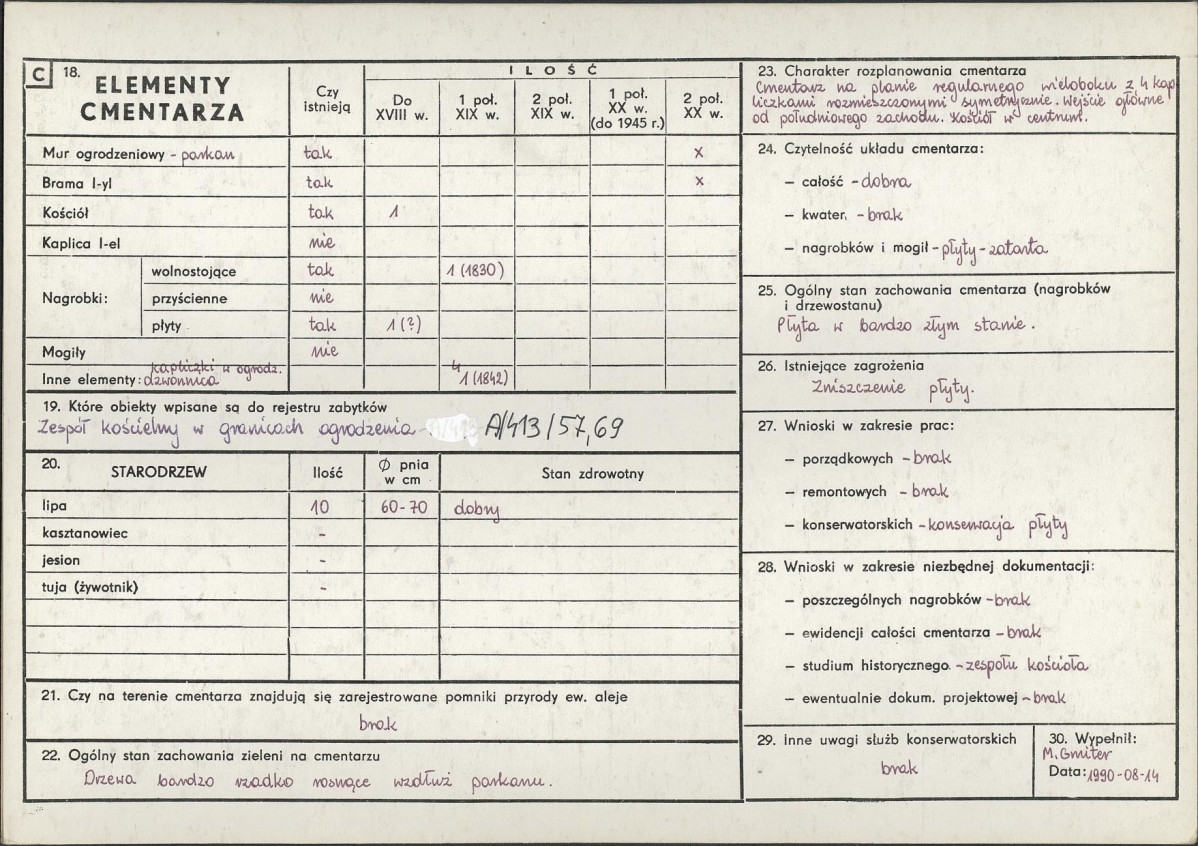 C 18. ELEMENTY CMENTARZA
Czy istnieją
ILOŚĆ
Do XVIII w.
1 poł. XIX w.
2 poł. XIX w.
1 poł. XX w. (do 1945 r.)
2 poł. XX w.
Mur ogrodzeniowy - parkan tak x
Brama I-yl tak x
Kościół tak 1
Kaplica I-el nie
Nagrobki: wolnostojące tak 1 (1830)
przyścienne nie
płyty tak 1 (?)
Mogiły nie
kapliczki w ogrodz. 4
Inne elementy: dzwonnica 1 (1842)
19. Które obiekty wpisane są do rejestru zabytków
Zespół kościelny w granicach ogrodzenia - A/413/57,69
20. STARODRZEW Ilość Ø pnia w cm Stan zdrowotny
lipa 10 60-70 dobry
kasztanowiec -
jesion -
tuja (żywotnik) -
21. Czy na terenie cmentarza znajdują się zarejestrowane pomniki przyrody ew. aleje
brak
22. Ogólny stan zachowania zieleni na cmentarzu
Drzewa bardzo rzadko rosnące wzdłuż parkanu.
23. Charakter rozplanowania cmentarza
Cmentarz na planie regularnego wieloboku z 4 kap
liczkami rozmieszczonymi symetrycznie. Wejście główne
od południowego zachodu. Kościół w centrum.
24. Czytelność układu cmentarza:
— całość - dobra
— kwater, - brak
— nagrobków i mogił - płyty - zatarta
25. Ogólny stan zachowania cmentarza (nagrobków
i drzewostanu)
Płyta w bardzo złym stanie.
26. Istniejące zagrożenia
Zniszczenie płyty.
27. Wnioski w zakresie prac:
— porządkowych - brak
— remontowych - brak
— konserwatorskich - konserwacja płyty
28. Wnioski w zakresie niezbędnej dokumentacji:
— poszczególnych nagrobków - brak
— ewidencji całości cmentarza - brak
— studium historycznego. - zespołu kościoła
— ewentualnie dokum. projektowej - brak
29. Inne uwagi służb konserwatorskich
brak
30. Wypełnił:
M. Gmiter
Data: 1990-08-14